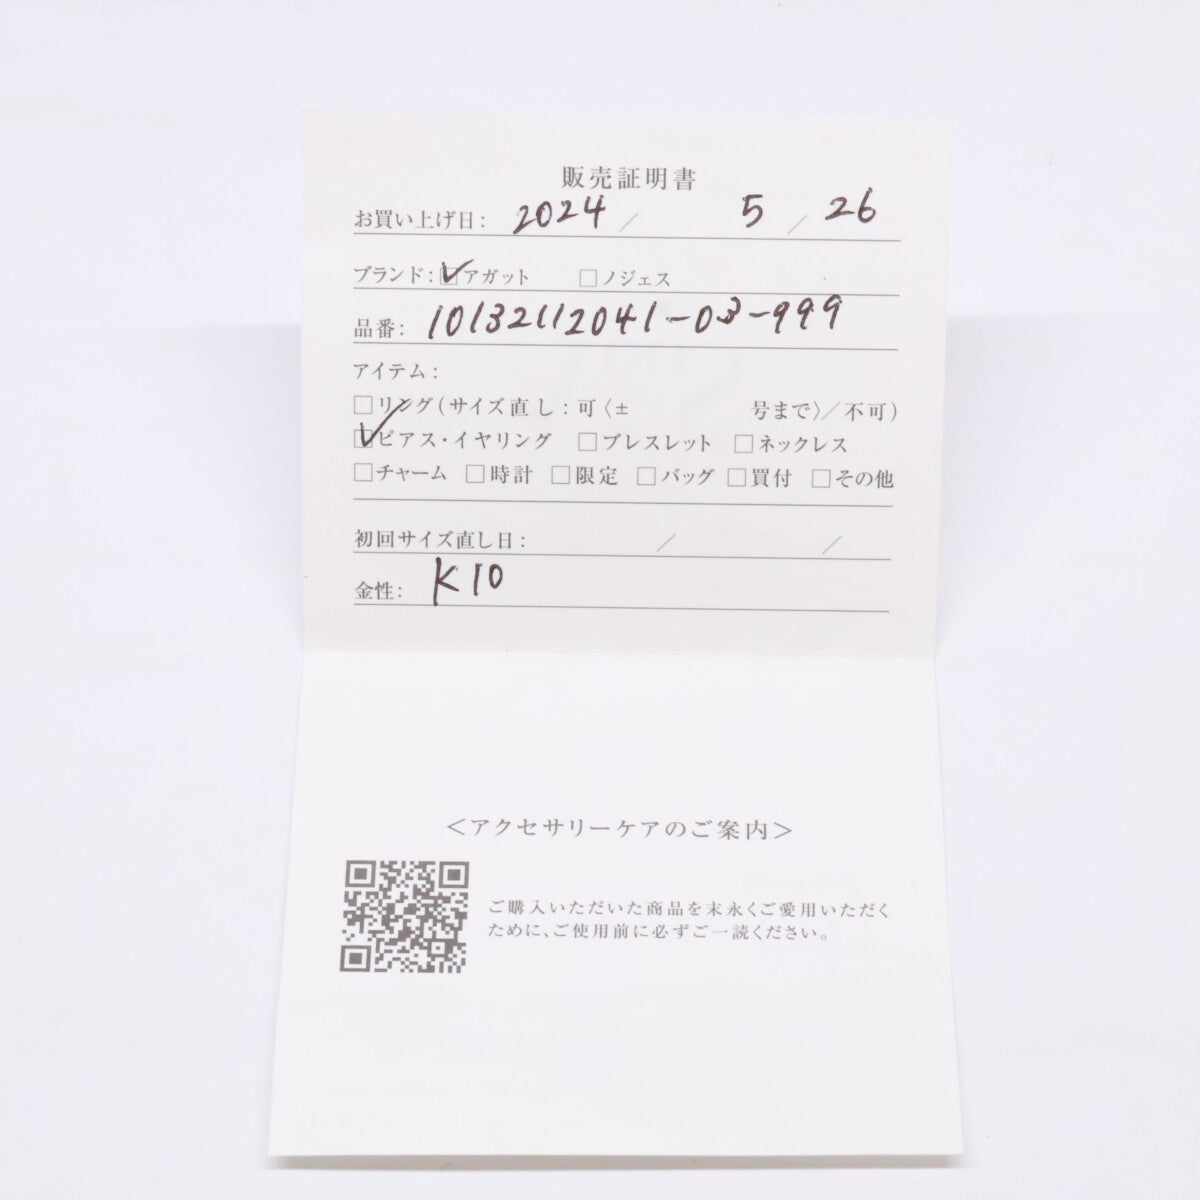 販売証明書
お買い上げ日: 2024 / 5 / 26
ブランド: ☑アガット □ノジェス
品番: 10132112041-03-999
アイテム:
□リング(サイズ直し:可〈± 号まで〉/不可)
☑ピアス・イヤリング □ブレスレット □ネックレス
□チャーム □時計 □限定 □バッグ □買付 □その他
初回サイズ直し日: / /
金性: K10
<アクセサリーケアのご案内>
ご購入いただいた商品を末永くご愛用いただく
ために、ご使用前に必ずご一読ください。